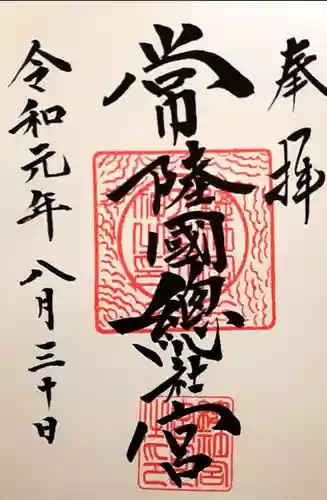 奉拝
常陸國總社宮
令和元年八月三十日